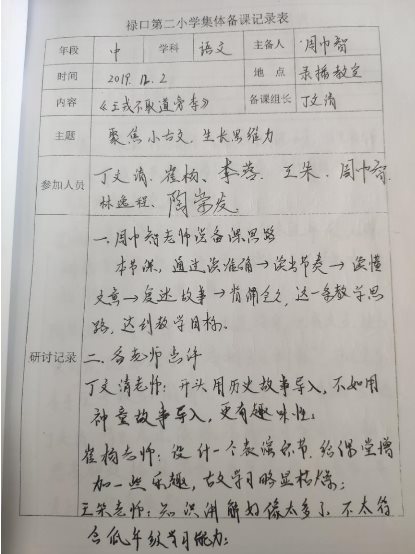 禄口第二小学集体备课记录表
年段 中 学科 语文 主备人 周巾智
时间 2019.12.2 地点 录播教室
内容 《王戎不取道旁李》 备课组长 丁文清
主题 聚焦小古文,生长思维力
参加人员 丁文清、崔杨、李蓉、王朱、周巾智、
林逸程、陶荣发
研讨记录
一.周巾智老师说备课思路
本节课,通过读准确→读出节奏→读懂
文意→复述故事→背诵全文,这一条教学思
路,达到教学目标。
二.各老师点评
丁文清老师:开头用历史故事导入,不如用
神童故事导入,更有趣味性;
崔杨老师:设计一个表演环节,给课堂增
加一些乐趣,古文学习略显枯燥;
王朱老师:知识讲解好像太多了,不太符
合低年级学习能力;